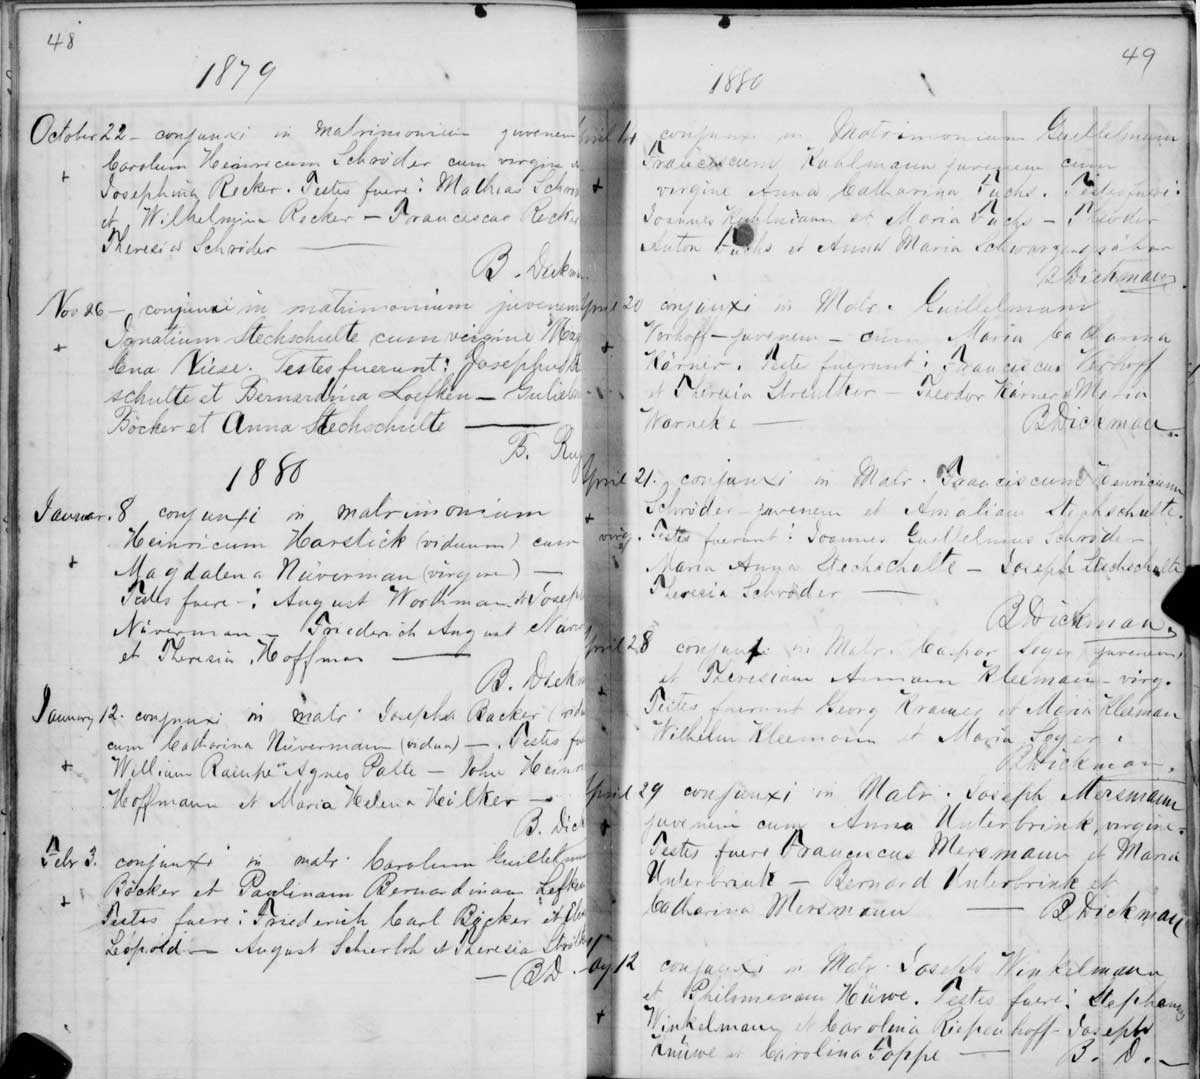 48
1879
October 22 - conjunxi in matrimonium juvenem
Carolum Heinricum Schröder cum virgine
Josephina Recker. Testes fuere: Mathias Schrö
et Wilhelmina Recker - Franciscus Recke
Theresia Schröder
B. Dickm
Nov 26 - conjunxi in matrimonium juvenem
Ignatium Stechschulte cum virgine Mag
lena Niese. Testes fuerunt: Josephus St
schulte et Bernardina Loefken - Guliel
Böcker et Anna Stechschulte
B.
1880
Januar. 8 conjunxi in matrimonium
Heinricum Harstick (viduum) cum
Magdalena Nüverman (virgine) -
Testes fuere -: August Worthman et Joseph
Nüverman - Friederich August
et Theresia Hoffman
B. Dickm
January 12. conjunxi in matr. Josepha Backer (vidu
cum Catharina Nüvermann (vidua) - Testes fu
William Raempe Agnes Palte - John Heinr
Hoffmann et Maria Helena Hölker -
B. Dick
Febr 3. conjunxi in matr. Carolum Guillelmum
Böcker et Paulinam Bernardinam Lefken
Testes fuere: Friederich Carl Böcker et
Leopold - August Scherloh et Theresia
- B D. -
49
1880
April 14 conjunxi in Matrimonium Guellelmum
Franciscum Kuhlmann juvenem cum
virgine Anna Catharina Fuchs. Testes fuere:
Joannes Kuhlmann et Maria Fuchs - Theodor
Anton Fuchs et Anna Maria
B Dickman
April 20 conjunxi in Matr. Guillelmum
Verhoff - juvenem - cum Maria Catharina
Kärner. Teste fuerunt: Franciscus Verhoff
et Theresia - Theodor Kärner & Maria
Warneke - B Dickman
April 21. conjunxi in Matr. Franciscum Henricum
Schröder - juvenem et Amaliam Stechschulte.
virg. Testes fuerunt: Joannes Guellelmus Schröder
et Maria Anna Stechschulte - Joseph Stechschulte
Theresia Schröder
B Dickman
April 28 conjunxi in Matr. Caspar Soger (juvenem)
et Theresiam Annam Kleeman - virg.
Testes fuerunt Georg Kramer et Maria Kleeman
Wilhelm Kleemann et Maria Soger.
B Dickman.
April 29 conjunxi in Matr. Joseph Mersmann
juvenem cum Anna Unterbrink, virgine.
Testes fuere Franciscus Mersmann et Maria
Unterbrink - Bernard Unterbrink et
Catharina Mersmann - B Dickman
May 12 conjunxi in Matr. Joseph Winkelmann
et Philomenam Hüwe. Testes fuere: Stephanus
Winkelmann et Carolina Riepenhoff - Joseph
Hüwe et Carolina Toppe - B. D. -